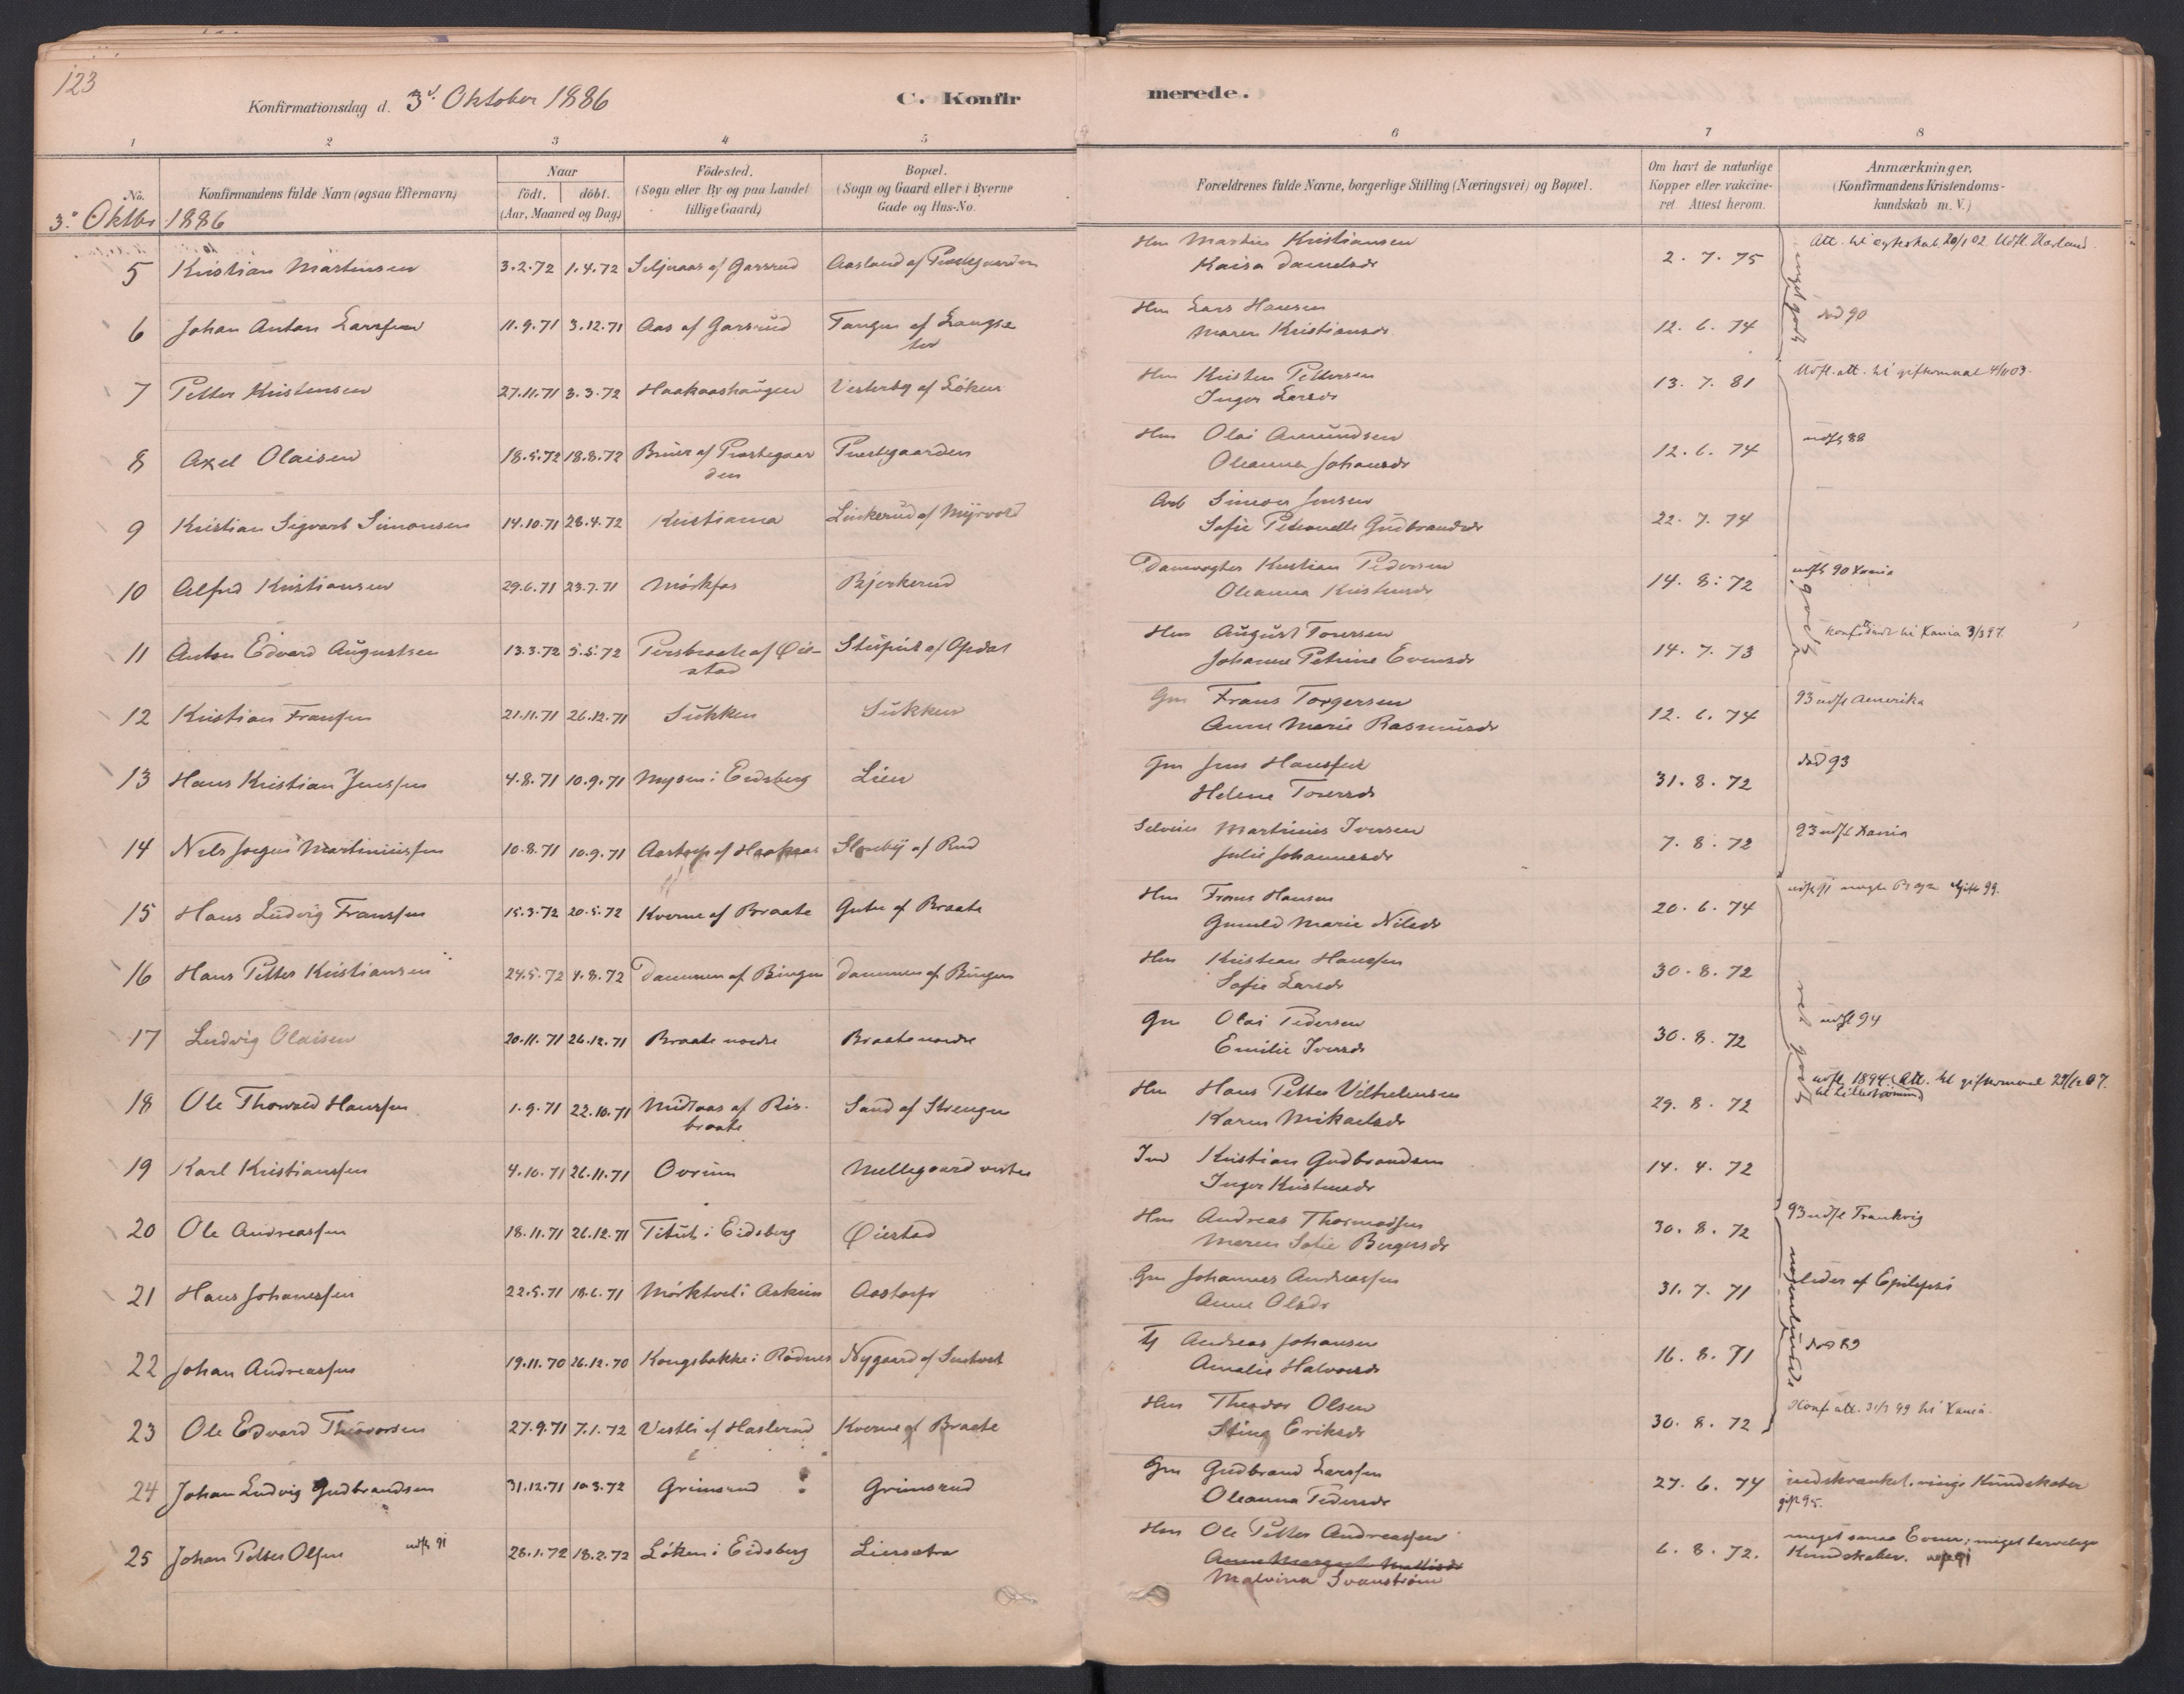 123
Konfirmationsdag d. 3d. Oktober 1886
C. Konfirmerede.
1 2 3 4 5 6 7 8
No.
Konfirmandens fulde Navn (ogsaa Efternavn)
Naar
födt. döbt.
(Aar, Maaned og Dag)
Födested.
(Sogn eller By og paa Landet
tillige Gaard)
Bopæl.
(Sogn og Gaard eller i Byerne
Gade og Hus-No.
Forældrenes fulde Navne, borgerlige Stilling (Næringsvei) og Bopæl.
Om havt de naturlige
Kopper eller vakcine-
ret. Attest herom.
Anmærkninger.
(Konfirmandens Kristendoms-
kundskab m. V.)
3. Oktbr 1886
5 Kristian Martinsen 3.2.72 1.4.72 Seljeaas af Garsrud Aasland af Prestgaarden Hm Martin Kristiansen 2. 7. 75
Kaisa Danielsdr
meget godt
6 Johan Anton Larssen 11.9.71 3.12.71 Aas af Garsrud Tangen af Langse Hm Lars Hansen 12. 6. 74 död 90
ter Maren Kristiansdr
7 Petter Kristensen 27.11.71 3.3.72 Haakaashaugen Vesterby af Löken Hm Kristen Pettersen 13. 7. 81 Udfl. att. til gifkomaal 4/1103.
Inger Larsdr
8 Axel Olaisen 18.5.72 18.8.72 Bruer af Prestegaar Prestgaarden Hm Olai Amundsen 12. 6. 74 udfl 88
den Oleanna Johansdr
9 Kristian Sigvart Simonsen 14.10.71 28.4.72 Kristiania Linkerud af Myrvold Arb Simon Jensen 22. 7. 74
Sofie Petronelle Gudbrandsdr
10 Alfred Kristiansen 29.6.71 23.7.71 Mörkfos Bjerkerud Damvogter Kristian Pedersen 14. 8. 72 udfl 90 Xania
Oleanna Kristensdr
godt
11 Anton Edvard Augustsen 13.3.72 5.5.72 Persbraate af Öie- Stuput af Opdal Hm August Torersen 14. 7. 73
stad Johanne Petrine Evensdr
12 Kristian Fransen 21.11.71 26.12.71 Sukken Sukken Gm Frans Torgersen 12. 6. 74 93 udfl Amerika
Anne Marie Rasmusdr
13 Hans Kristian Jenssen 4.8.71 10.9.71 Mysen i Eidsberg Lien Gm Jens Hanssen 31. 8. 72 död 93
Helene Torersdr
14 Nils Jorgen Martiniussen 10.8.71 10.9.71 Aastorp af Haakaas af Rud Selveier Martinius Iversen 7. 8. 72 93 udfl Xania
Julie Johannesdr
15 Hans Ludvig Franssen 15.3.72 20.5.72 Kverne af Braate Gutu af Braate Hm Frans Hansen 20. 6. 74
Gunild Marie Nilsdr
16 Hans Petter Kristiansen 24.5.72 4.8.72 Dammen af Bingen Dammen af Bingen Hm Kristian Hanssen 30. 8. 72
Sofie Larsdr
17 Ludvig Olaisen 20.11.71 26.12.71 Braate nordre Braate nordre Gm Olai Pedersen 30. 8. 72 udfl 94
Emilie Iversdr
godt
18 Ole Thorvald Hanssen 1.9.71 22.10.71 Midtaas af Ris- Sand af Strengen Hm Hans Petter Vilhelmsen 29. 8. 72 udfl 1894. Att. til gifkomaal 27/1207.
braate Karen Mikaelsdr
19 Karl Kristianssen 4.10.71 26.11.71 Ovrum Mellegaard vestre Ind Kristian Gudbrandsen 14. 4. 72
Inger Kristensdr
20 Ole Andreassen 18.11.71 26.12.71 Titut i Eidsberg Öiestad Hm Andreas Thormodsen 30. 8. 72 93 udfl Trankvig
Maren Sofie Birgersdr
21 Hans Johanssen 22.5.71 18.6.71 Mörktvel i Askim Aastorp Gm Johannes Andreassen 31. 7. 71 lider af Epilepsi
Anne Olsdr
nogenlunde
22 Johan Andreassen 19.11.70 26.12.70 Kongsbakke i Rödnes Nygaard af Sentvet Tj Andreas Johansen 16. 8. 71 död 89
Amalie Halvorsdr
23 Ole Edvard Theodorsen 27.9.71 7.1.72 Vestli af Haslerud Kverne af Braate Hm Theodor Olsen 30. 8. 72 Konf. att. 31/1 99 til Xania
Stine Eriksdr
24 Johan Ludvig Gudbrandsen 31.12.71 10.3.72 Grimsrud Grimsrud Gm Gudbrand Larssen 27. 6. 74 indskrænket. ringe Kundskaber
Oleanna Pedersdr gift 95.
25 Johan Petter Olsen udfl 91 28.1.72 18.2.72 Löken i Eidsberg Liersætra Hm Ole Petter Andreassen 6. 8. 72. meget smaa Evner; meget tarvelige
Anne Margret Mattisdr Kundskaber.
Malvina Svanström